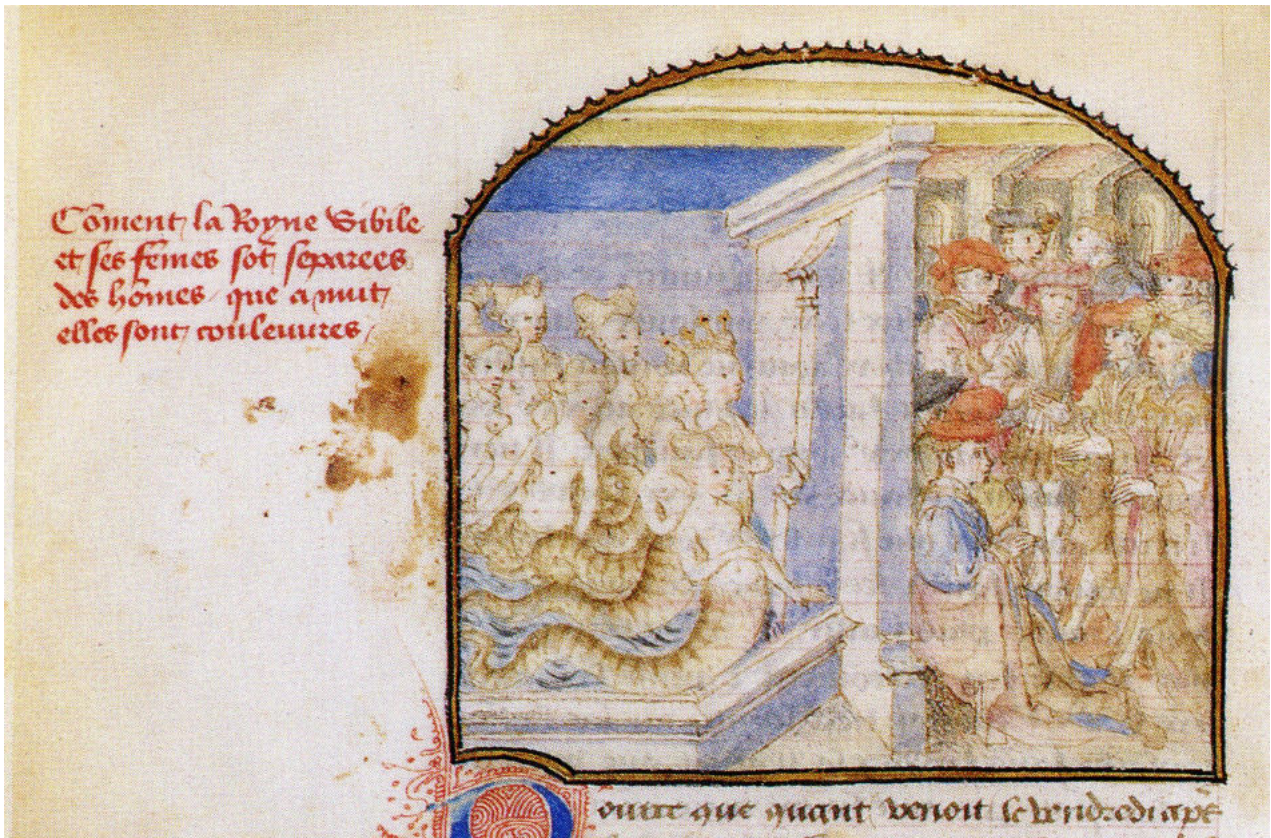 Cõment la Royne Sibile
et ses fẽmes sõt separees
des hõmes que a nuit
elles sont couleuures
outre que quant venoit le vendredi apr̃